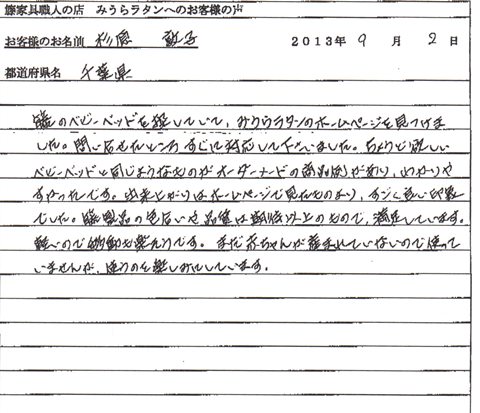 籐家具職人の店 みうらラタンへのお客様の声
お客様のお名前 杉原 2013年 9 月 2 日
都道府県名 千葉県
籐のベビーベッドを探していて、みうらラタンのホームページを見つけま
した。問い合せたところすぐに対応して下さいました。ちょうど欲しい
ベビーベッドと同じようなものがオーダーメードの商品例があり、わかりや
すかったです。出来上がりはホームページで見たものより、すごく良い印象
でした。籐製品の色合いや品質は期待以上のもので、満足しています。
軽いので移動も楽そうです。まだ赤ちゃんが産まれていないので使って
いませんが、使うのを楽しみにしています。